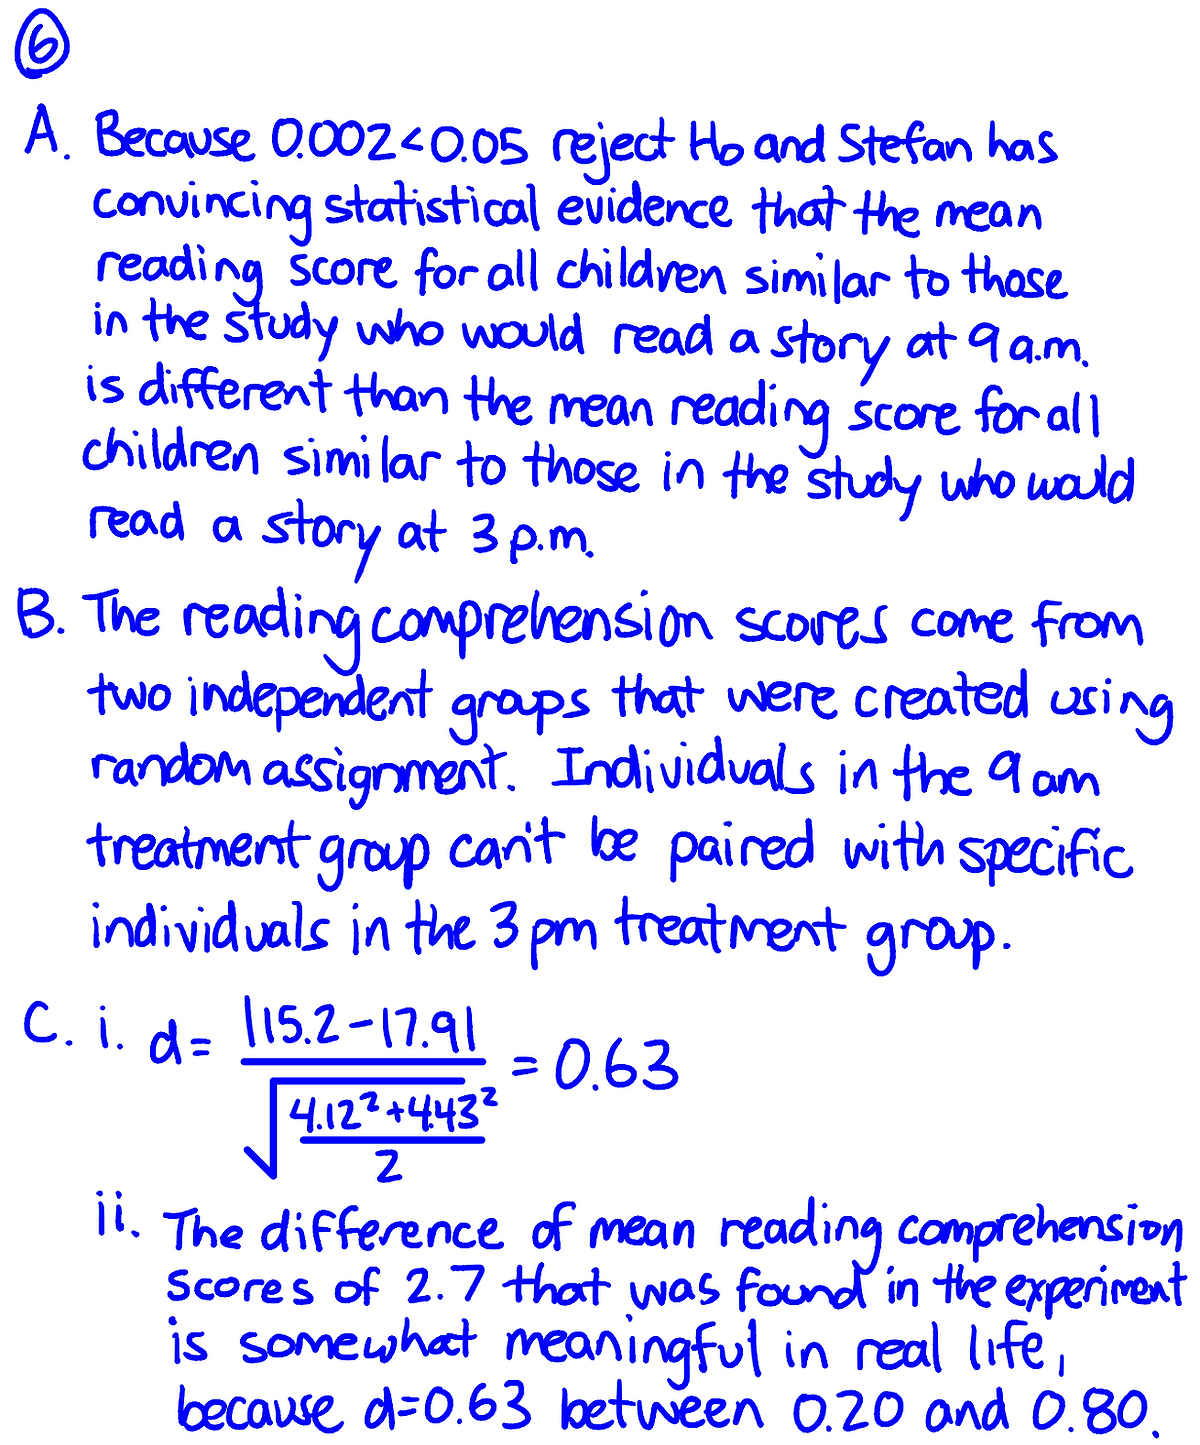 6
A. Because 0.002<0.05 reject H₀ and Stefan has
convincing statistical evidence that the mean
reading score for all children similar to those
in the study who would read a story at 9 a.m.
is different than the mean reading score for all
children similar to those in the study who would
read a story at 3 p.m.
B. The reading comprehension scores come from
two independent groups that were created using
random assignment. Individuals in the 9 am
treatment group can't be paired with specific
individuals in the 3 pm treatment group.
C. i. d = |15.2-17.9| / √((4.12²+4.43²)/2) = 0.63
ii. The difference of mean reading comprehension
scores of 2.7 that was found in the experiment
is somewhat meaningful in real life,
because d=0.63 between 0.20 and 0.80.